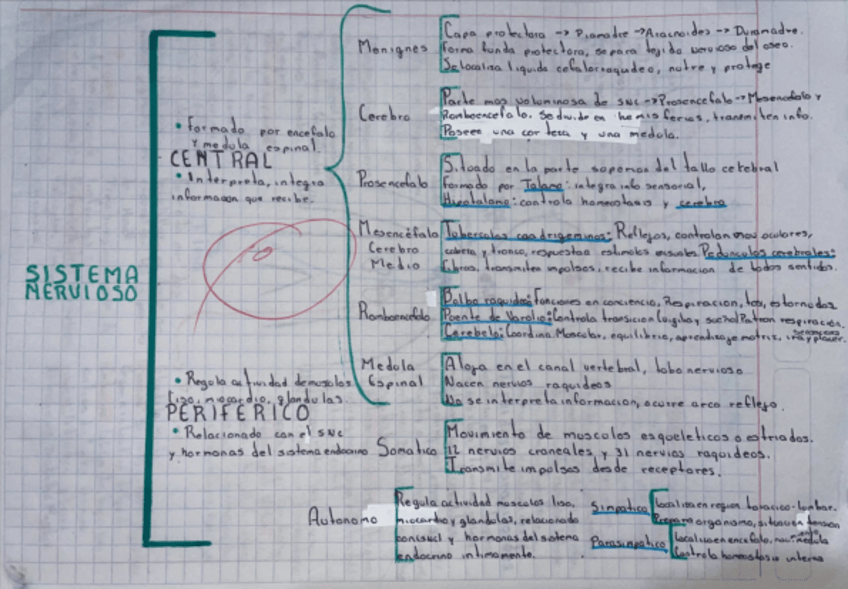 SISTEMA
NERVIOSO
• Formado por encefalo
y medula espinal.
CENTRAL
• Interpreta, integra
informacion que recibe.
Menignes
Capa protectora -> Piamadre -> Aracnoides -> Duramadre.
forma funda protectora, separa tejido nervioso del oseo.
Se localiza liquido cefalorraquideo, nutre y protege
Cerebro
Parte mas voluminosa de SNC -> Prosencefalo -> Mesencefalo y
Romboencefalo. Se divide en hemisferios, transmiten info.
Poseen una corteza y una medola.
Prosencefalo
Situado en la parte soperior del tallo cerebral
formado por Talamo: integra info sensorial,
Hipotalamo: controla homeostasis y cerebro
Mesencéfalo
Cerebro
Medio
Tubercolos coadrigeminos: Reflejos, controlan mov. oculares,
cabeza y tronco, respuesta a estimolos visuales Pedunculos cerebrales:
fibras, transmiten impolsos, recibe informacion de todos sentidos.
Romboencefalo
Bolbo raquideo: funciones en conciencia, Respiracion, tos, estornudos
Poente de Varolio: Controla transicion vigilia y sueño Patron respiración.
Cerebelo: Coordina Moscular, equilibrio, aprendizaje motriz, ira y placer.
Medola
Espinal
Aloja en el canal vertebral, lobo nervioso
Nacen nervios raquideos
No se interpreta informacion, ocurre arco reflejo.
• Regula actividad de musculos
liso, miocardio, glandulas.
PERIFERICO
• Relacionado con el SNC
y hormonas del sistema endocrino
Somatico
Movimiento de muscolos esqueleticos o estriados.
12 nervios craneales y 31 nervios raquideos.
Transmite impolsos desde receptores.
Autonomo
Regula actividad muscolos liso,
miocardio y glandulas, relacionado
con el SNC y hormonas del sistema
endocrino intimamente.
Simpatico
Localiza en region toracico-lumbar.
Prepara organismo, situacion tension
Parasimpatico
Localiza en encefalo, medula
Controla homeostasis interna